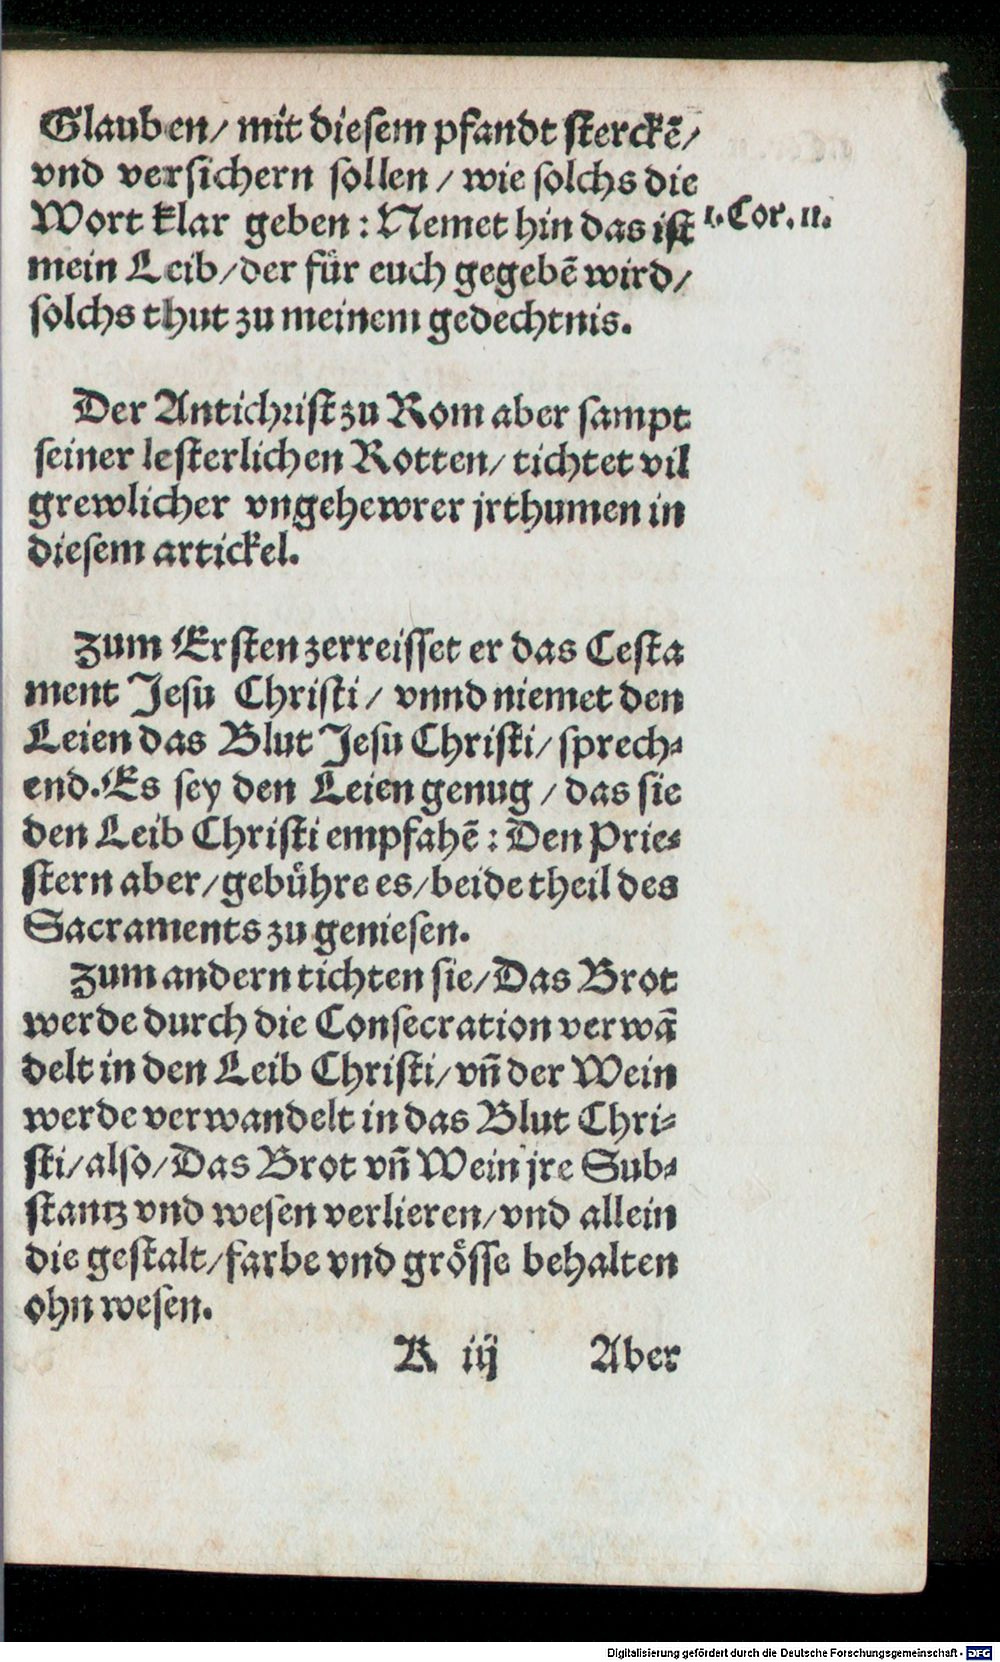 Glauben/ mit diesem pfandt sterckē/
vnd versichern sollen / wie solchs die
Wort klar geben: Nemet hin das ist
1. Cor. 11.
mein Leib/ der für euch gegebē wird/
solchs thut zu meinem gedechtnis.
Der Antichrist zu Rom aber sampt
seiner lesterlichen Rotten/ tichtet vil
grewlicher vngehewrer jrthumen in
diesem artickel.
Zum Ersten zerreisset er das Testa
ment Jesu Christi/ vnnd niemet den
Leien das Blut Jesu Christi/ sprech-
end. Es sey den Leien genug / das sie
den Leib Christi empfahē: Den Prie-
stern aber/ gebühre es/ beide theil des
Sacraments zu geniesen.
Zum andern tichten sie/ Das Brot
werde durch die Consecration verwā
delt in den Leib Christi/ vn̄ der Wein
werde verwandelt in das Blut Chri-
sti/ also/ Das Brot vn̄ Wein jre Sub-
stantz vnd wesen verlieren/ vnd allein
die gestalt/ farbe vnd grösse behalten
ohn wesen.
K iij Aber
Digitalisierung gefördert durch die Deutsche Forschungsgemeinschaft - DFG